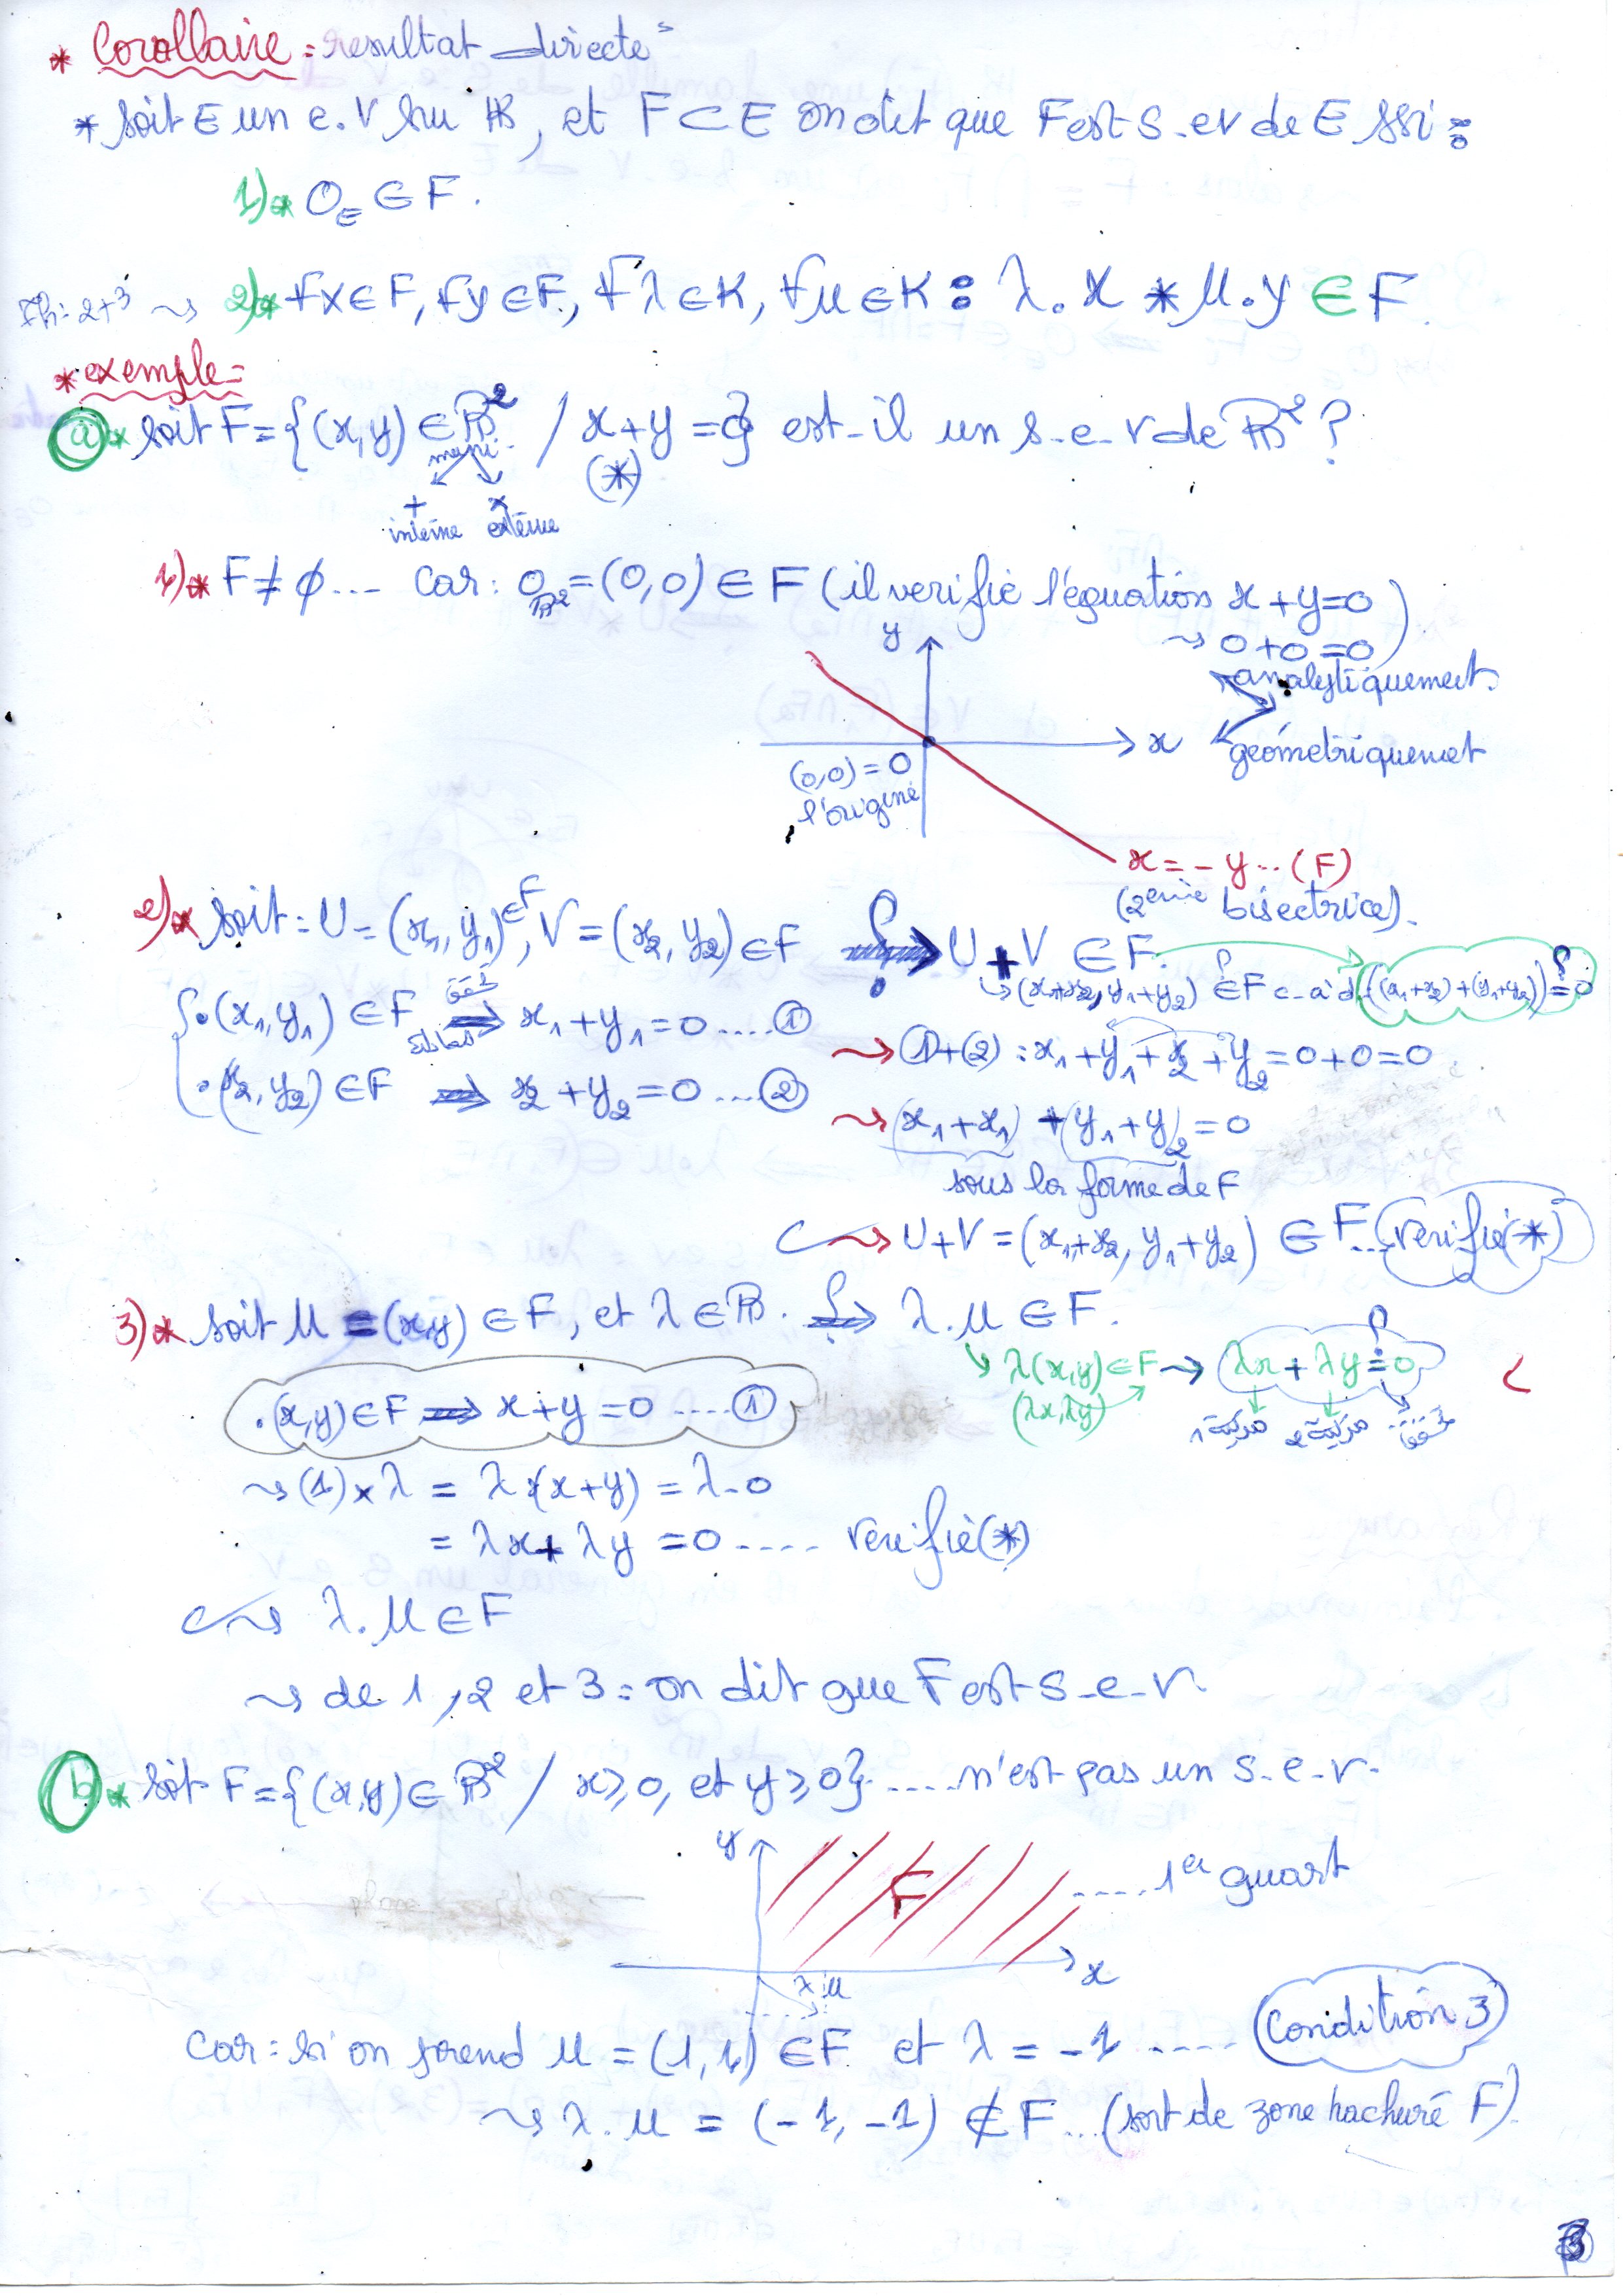 * Corollaire = resultat directe
* soit E un e.v sur IR, et F ⊂ E on dit que F est s-ev de E ssi :
1)* 0_E ∈ F.
Th: 2+3 ⇝ 2)* ∀x ∈ F, ∀y ∈ F, ∀λ ∈ K, ∀μ ∈ K : λ.x * μ.y ∈ F.
* exemple =
a)* soit F = {(x,y) ∈ IR² / x+y = 0} est-il un s-e-v de IR² ?
muni (*)
+ ×
interne externe
1)* F ≠ ∅ ... car : 0_IR² = (0,0) ∈ F (il verifie l'équation x+y=0
⇝ 0+0=0)
y
analytiquement
x géometriquemet
(0,0) = 0
l'origine
x = -y ... (F)
(2eme bisectrice).
2)* soit : U = (x₁, y₁) ∈ F, V = (x₂, y₂) ∈ F ?⇒ U + V ∈ F.
↳ (x₁+x₂, y₁+y₂) ∈? F c-à-d ((x₁+x₂)+(y₁+y₂)) =? 0
• (x₁, y₁) ∈ F ⇒ تحقق x₁+y₁ = 0 ..... ①
⇝ ①+(2) : x₁+y₁+x₂+y₂ = 0+0 = 0.
• (x₂, y₂) ∈ F ⇒ x₂+y₂ = 0 .... ②
⇝ (x₁+x₁) + (y₁+y₂) = 0
sous la forme de F
⇝ U+V = (x₁+x₂, y₁+y₂) ∈ F ... verifie (*)
3)* soit μ = (x,y) ∈ F, et λ ∈ IR. ?⇒ λ.μ ∈ F.
↳ λ(x,y) ∈ F → λx + λy =? 0
(λx, λy)
مركبة 1 مركبة 2 تحقق
• (x,y) ∈ F ⇒ x+y = 0 ..... ①
⇝ (1) × λ = λ.(x+y) = λ.0
= λx + λy = 0 .... verifiè (*)
⇝ λ.μ ∈ F
⇝ de 1, 2 et 3 = on dit que F est s-e-v.
b)* soit F = {(x,y) ∈ IR² / x ≥ 0, et y ≥ 0} ..... n'est pas un s-e-v.
y
F .... 1er quart
x
λμ
car : si on prend μ = (1,1) ∈ F et λ = -1 ..... Condition 3
⇝ λ.μ = (-1,-1) ∉ F ... (sort de zone hachuré F)
3